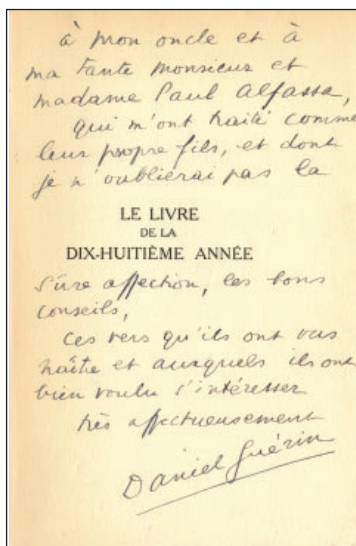 à mon oncle et à
ma tante Monsieur et
Madame Paul Alfassa,
qui m'ont traité comme
leur propre fils, et dont
je n'oublierai pas la
LE LIVRE
DE LA
DIX-HUITIÈME ANNÉE
sûre affection, les bons
conseils,
ces vers qu'ils ont vus
naître et auxquels ils ont
bien voulu s'intéresser
très affectueusement
Daniel Guérin